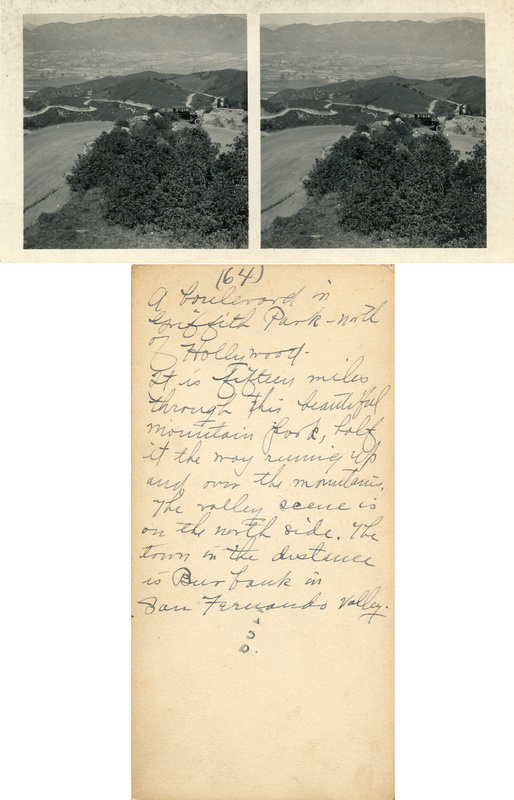 (64)
A boulevard in
Griffith Park - north
of Hollywood.
It is fifteen miles
through this beautiful
mountain park, half
it the way running up
and over the mountains.
The valley scene is
on the north side. The
town in the distance
is Burbank in
San Fernando Valley.